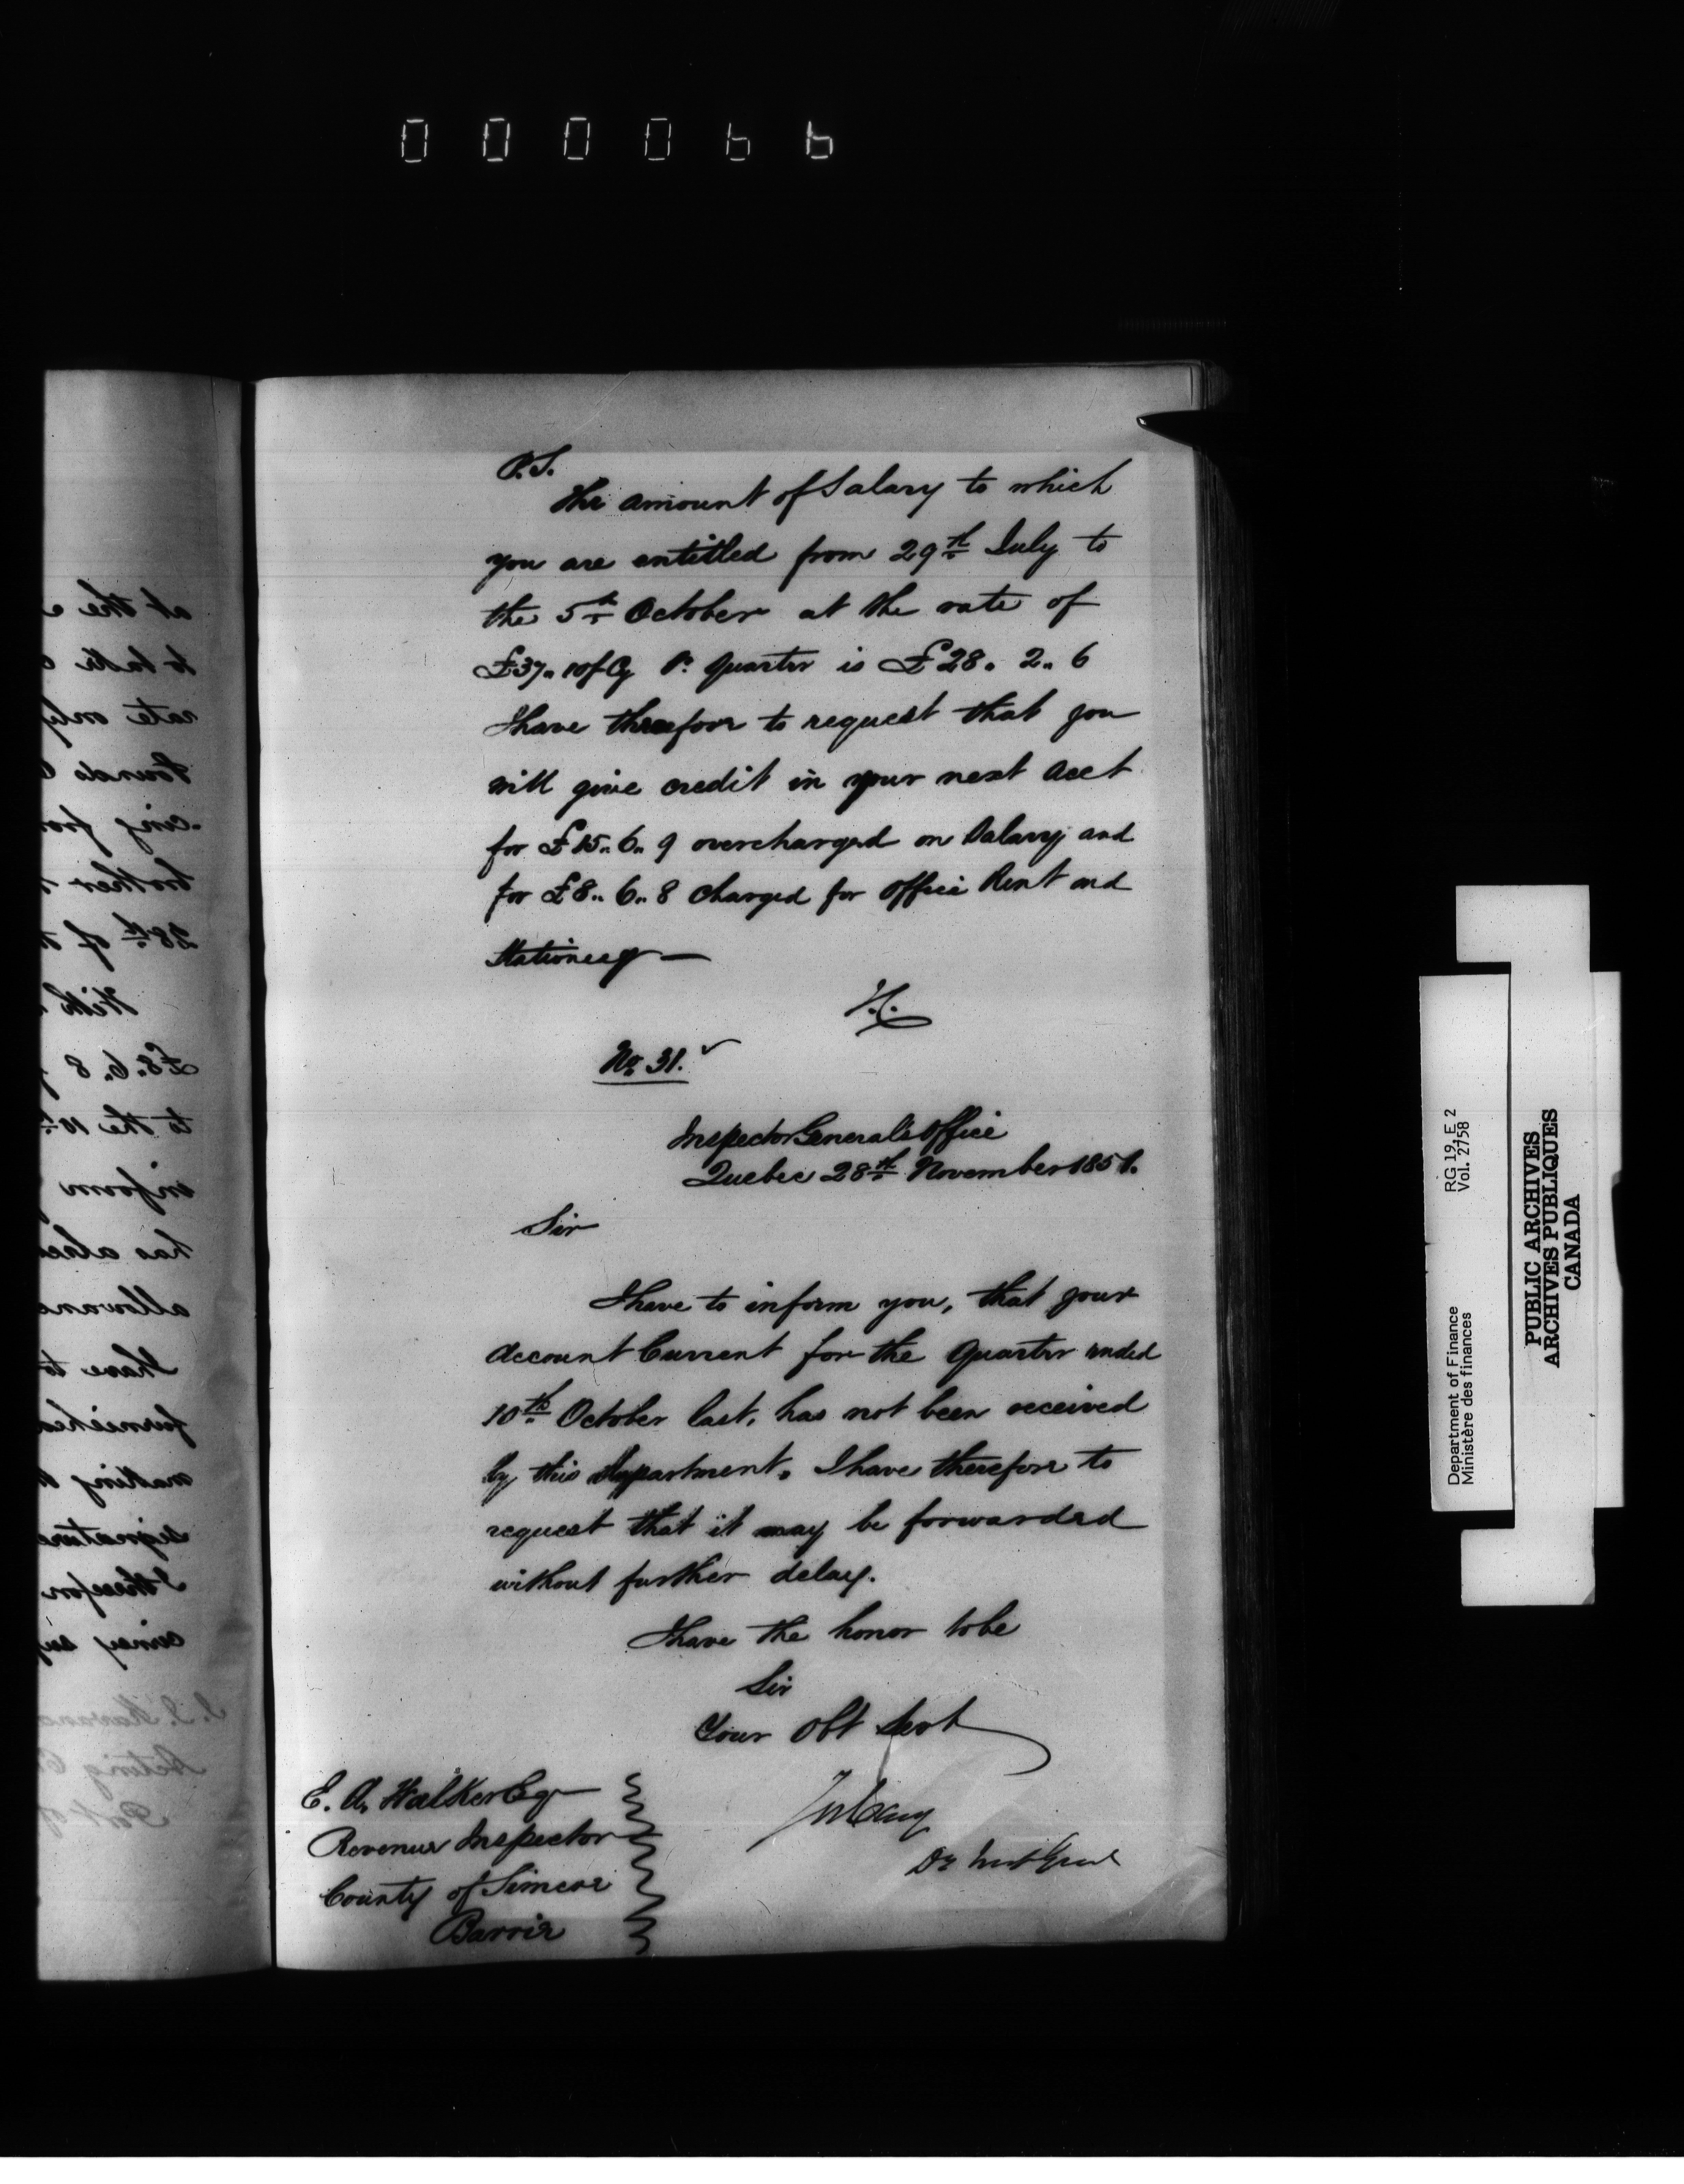 000066
P.S.
The amount of Salary to which
you are entitled from 29th July to
the 5th October at the rate of
£37.. 10/ Cy Pr. quarter is £28.. 2.. 6
I have therefore to request that you
will give credit in your next acct
for £15.. 6.. 9 overcharged on Salary and
for £8.. 6.. 8 charged for Office Rent and
Stationery —
No. 31.
Inspector General's Office
Quebec 28th November 1851.
Sir
I have to inform you, that your
Account Current for the Quarter ended
10th October last, has not been received
by this Department. I have therefore to
request that it may be forwarded
without further delay.
I have the honor to be
Sir
Your Obt Servt
Jos Cary
Dy Inst Genl
E. A. Walker Esq
Revenue Inspector
County of Simcoe
Barrie
at the
to take
rate only
Pounds
-cing from
brother
28th of
With
£8.. 6.. 8
to the 10th
inform
has
have to
furnished
making
signature
I therefor
Acting
Port of
Department of Finance
Ministère des finances
RG 19, E 2
Vol. 2758
PUBLIC ARCHIVES
ARCHIVES PUBLIQUES
CANADA